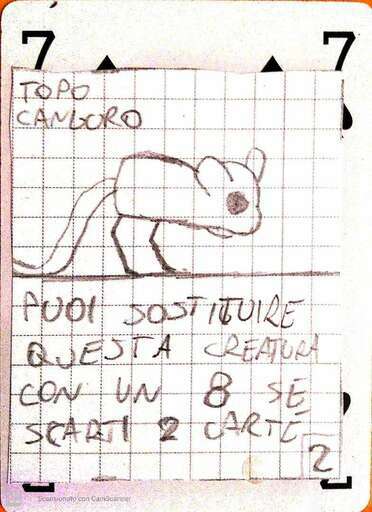 7 7
TOPO
CANGURO
PUOI SOSTITUIRE
QUESTA CREATURA
CON UN 8 SE
SCARTI 2 CARTE
2
Scansionato con CamScanner